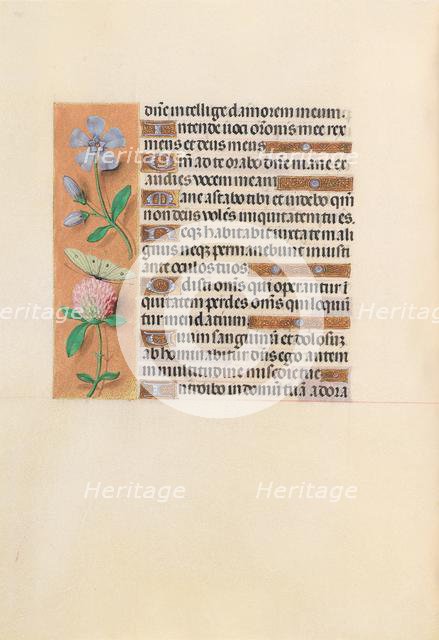 dñe intellige clamorem meum:
Intende uoci orõnis mee rex
meus et deus meus
Qm̃ ad te orabo dñe mane ex
audies vocem meam
Mane astabo tibi et uidebo qm̃
non deus volẽs iniquitatem tu es.
Neqꝫ habitabit iuxta te mali
gnus neqꝫ permanebunt iniusti
ante oculos tuos
Odisti omñs qui operantur i
quitatem perdes omñs qui loqui
tur mendatium
Uirum sanguinum et dolosum
abhominabitur dñs ego autem
in multitudine misẽdie tue
Introibo in domum tuã adora
Heritage
Heritage
Heritage
Heritage
Heritage
Heritage
Heritage